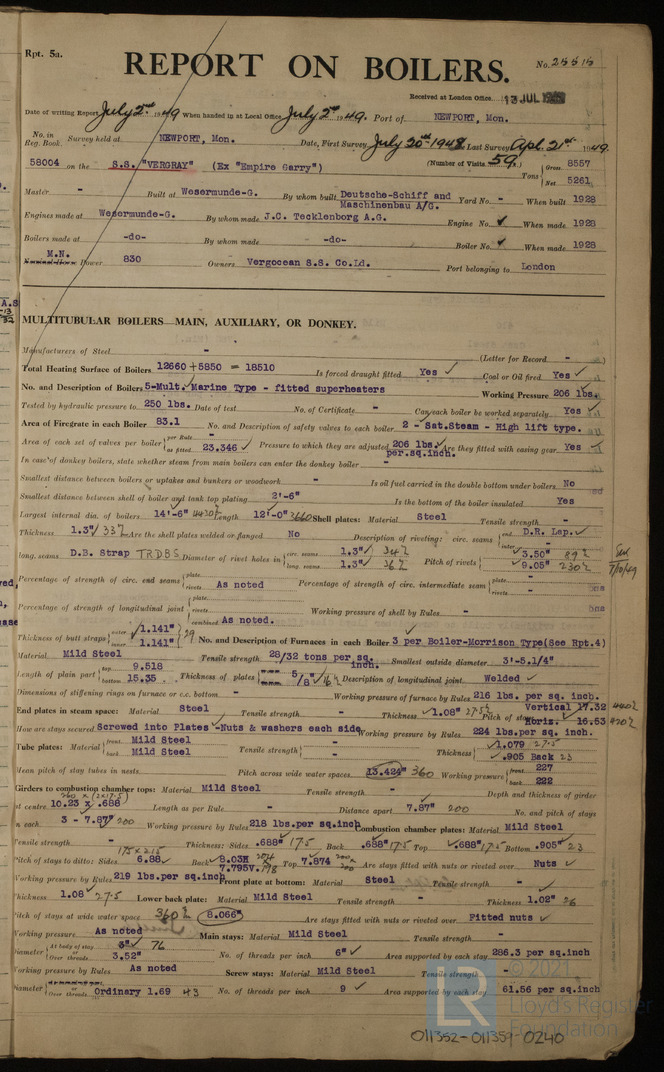 Rpt. 5a.
REPORT ON BOILERS.
No. 25515
Received at London Office 13 JUL 1949
Date of writing Report July 2nd 1949 When handed in at Local Office July 2nd 1949. Port of NEWPORT, Mon.
No. in Reg. Book. Survey held at NEWPORT, Mon. Date, First Survey July 20th 1948 Last Survey Apl. 21st 1949
58004 on the S.S. "VERGRAY" (Ex "Empire Garry") (Number of Visits 59) Tons Gross 8557 Net 5261
Master - Built at Wesermunde-G. By whom built Deutsche-Schiff and Maschinenbau A/G. Yard No. - When built 1928
Engines made at Wesermunde-G. By whom made J.C. Tecklenborg A.G. Engine No. ✓ When made 1928
Boilers made at -do- By whom made -do- Boiler No. ✓ When made 1928
M.N. Nominal Horse Power 830 Owners Vergocean S.S. Co.Ld. Port belonging to London
MULTITUBULAR BOILERS MAIN, AUXILIARY, OR DONKEY.
Manufacturers of Steel - (Letter for Record - )
Total Heating Surface of Boilers 12660 + 5850 = 18510 Is forced draught fitted Yes ✓ Coal or Oil fired Yes ✓
No. and Description of Boilers 5-Mult. Marine Type - fitted superheaters Working Pressure 206 lbs.
Tested by hydraulic pressure to 250 lbs. Date of test - No. of Certificate - Can each boiler be worked separately Yes ✓
Area of Firegrate in each Boiler 83.1 No. and Description of safety valves to each boiler 2 - Sat.Steam - High lift type.
Area of each set of valves per boiler per Rule - as fitted 23.346 ✓ Pressure to which they are adjusted 206 lbs. per.sq.inch. Are they fitted with easing gear Yes ✓
In case of donkey boilers, state whether steam from main boilers can enter the donkey boiler -
Smallest distance between boilers or uptakes and bunkers or woodwork - Is oil fuel carried in the double bottom under boilers No
Smallest distance between shell of boiler and tank top plating 2'-6" Is the bottom of the boiler insulated Yes
Largest internal dia. of boilers 14'-6" 4420 Length 12'-0" 3660 Shell plates: Material Steel Tensile strength -
Thickness 1.3" ✓ 33 Are the shell plates welded or flanged No Description of riveting: circ. seams end D.R. Lap. ✓ inter -
long. seams D.B. Strap TRDBS Diameter of rivet holes in circ. seams 1.3" ✓ 34 long. seams 1.3" ✓ 36 Pitch of rivets 3.50" 89 9.05" 230
7/10/49
Percentage of strength of circ. end seams plate rivets As noted Percentage of strength of circ. intermediate seam plate - rivets -
Percentage of strength of longitudinal joint plate rivets combined As noted. Working pressure of shell by Rules -
Thickness of butt straps outer 1.141" inner 1.141" 29 No. and Description of Furnaces in each Boiler 3 per Boiler-Morrison Type(See Rpt.4)
Material Mild Steel Tensile strength 28/32 tons per sq. inch. Smallest outside diameter 3'-5.1/4"
Length of plain part top 9.518 bottom 15.35 Thickness of plates 5/8" ✓ 16 Description of longitudinal joint Welded ✓
Dimensions of stiffening rings on furnace or c.c. bottom - Working pressure of furnace by Rules 216 lbs. per sq. inch.
End plates in steam space: Material Steel Tensile strength - Thickness 1.08" 27.5 Pitch of stays Vertical 17.32 440 Horiz. 16.53 420
How are stays secured Screwed into Plates -Nuts & washers each side Working pressure by Rules 224 lbs.per sq. inch.
Tube plates: Material front Mild Steel back Mild Steel Tensile strength - - Thickness 1.079 27.5 .905 Back 23
Mean pitch of stay tubes in nests Pitch across wide water spaces 13.424" 360 Working pressure front 227 back 222
Girders to combustion chamber tops: Material Mild Steel Tensile strength - Depth and thickness of girder
at centre 10.23 x .688 Length as per Rule - Distance apart 7.87" 200 No. and pitch of stays
in each 3 - 7.87" 200 Working pressure by Rules 218 lbs.per sq.inch Combustion chamber plates: Material Mild Steel
Tensile strength - Thickness: Sides .688" 17.5 Back .688" 17.5 Top .688" 17.5 Bottom .905" 23
175 x 215
Pitch of stays to ditto: Sides 6.88 ✓ Back 8.03H 204 7.795V. 198 Top 7.874 200 Are stays fitted with nuts or riveted over Nuts ✓
Working pressure by Rules 219 lbs.per sq.inch Front plate at bottom: Material Steel Tensile strength -
Thickness 1.08" 27.5 Lower back plate: Material Mild Steel Tensile strength - Thickness 1.02" 26
Pitch of stays at wide water space 360 8.066" Are stays fitted with nuts or riveted over Fitted nuts ✓
Working pressure As noted Main stays: Material Mild Steel Tensile strength -
Diameter At body of stay 3" 76 Over threads 3.52" No. of threads per inch 6" ✓ Area supported by each stay 286.3 per sq.inch
Working pressure by Rules As noted Screw stays: Material Mild Steel Tensile strength -
Diameter Over threads Ordinary 1.69 43 No. of threads per inch 9 ✓ Area supported by each stay 61.56 per sq.inch
© 2021
LR Lloyd's Register
Foundation
011352-011359-0240